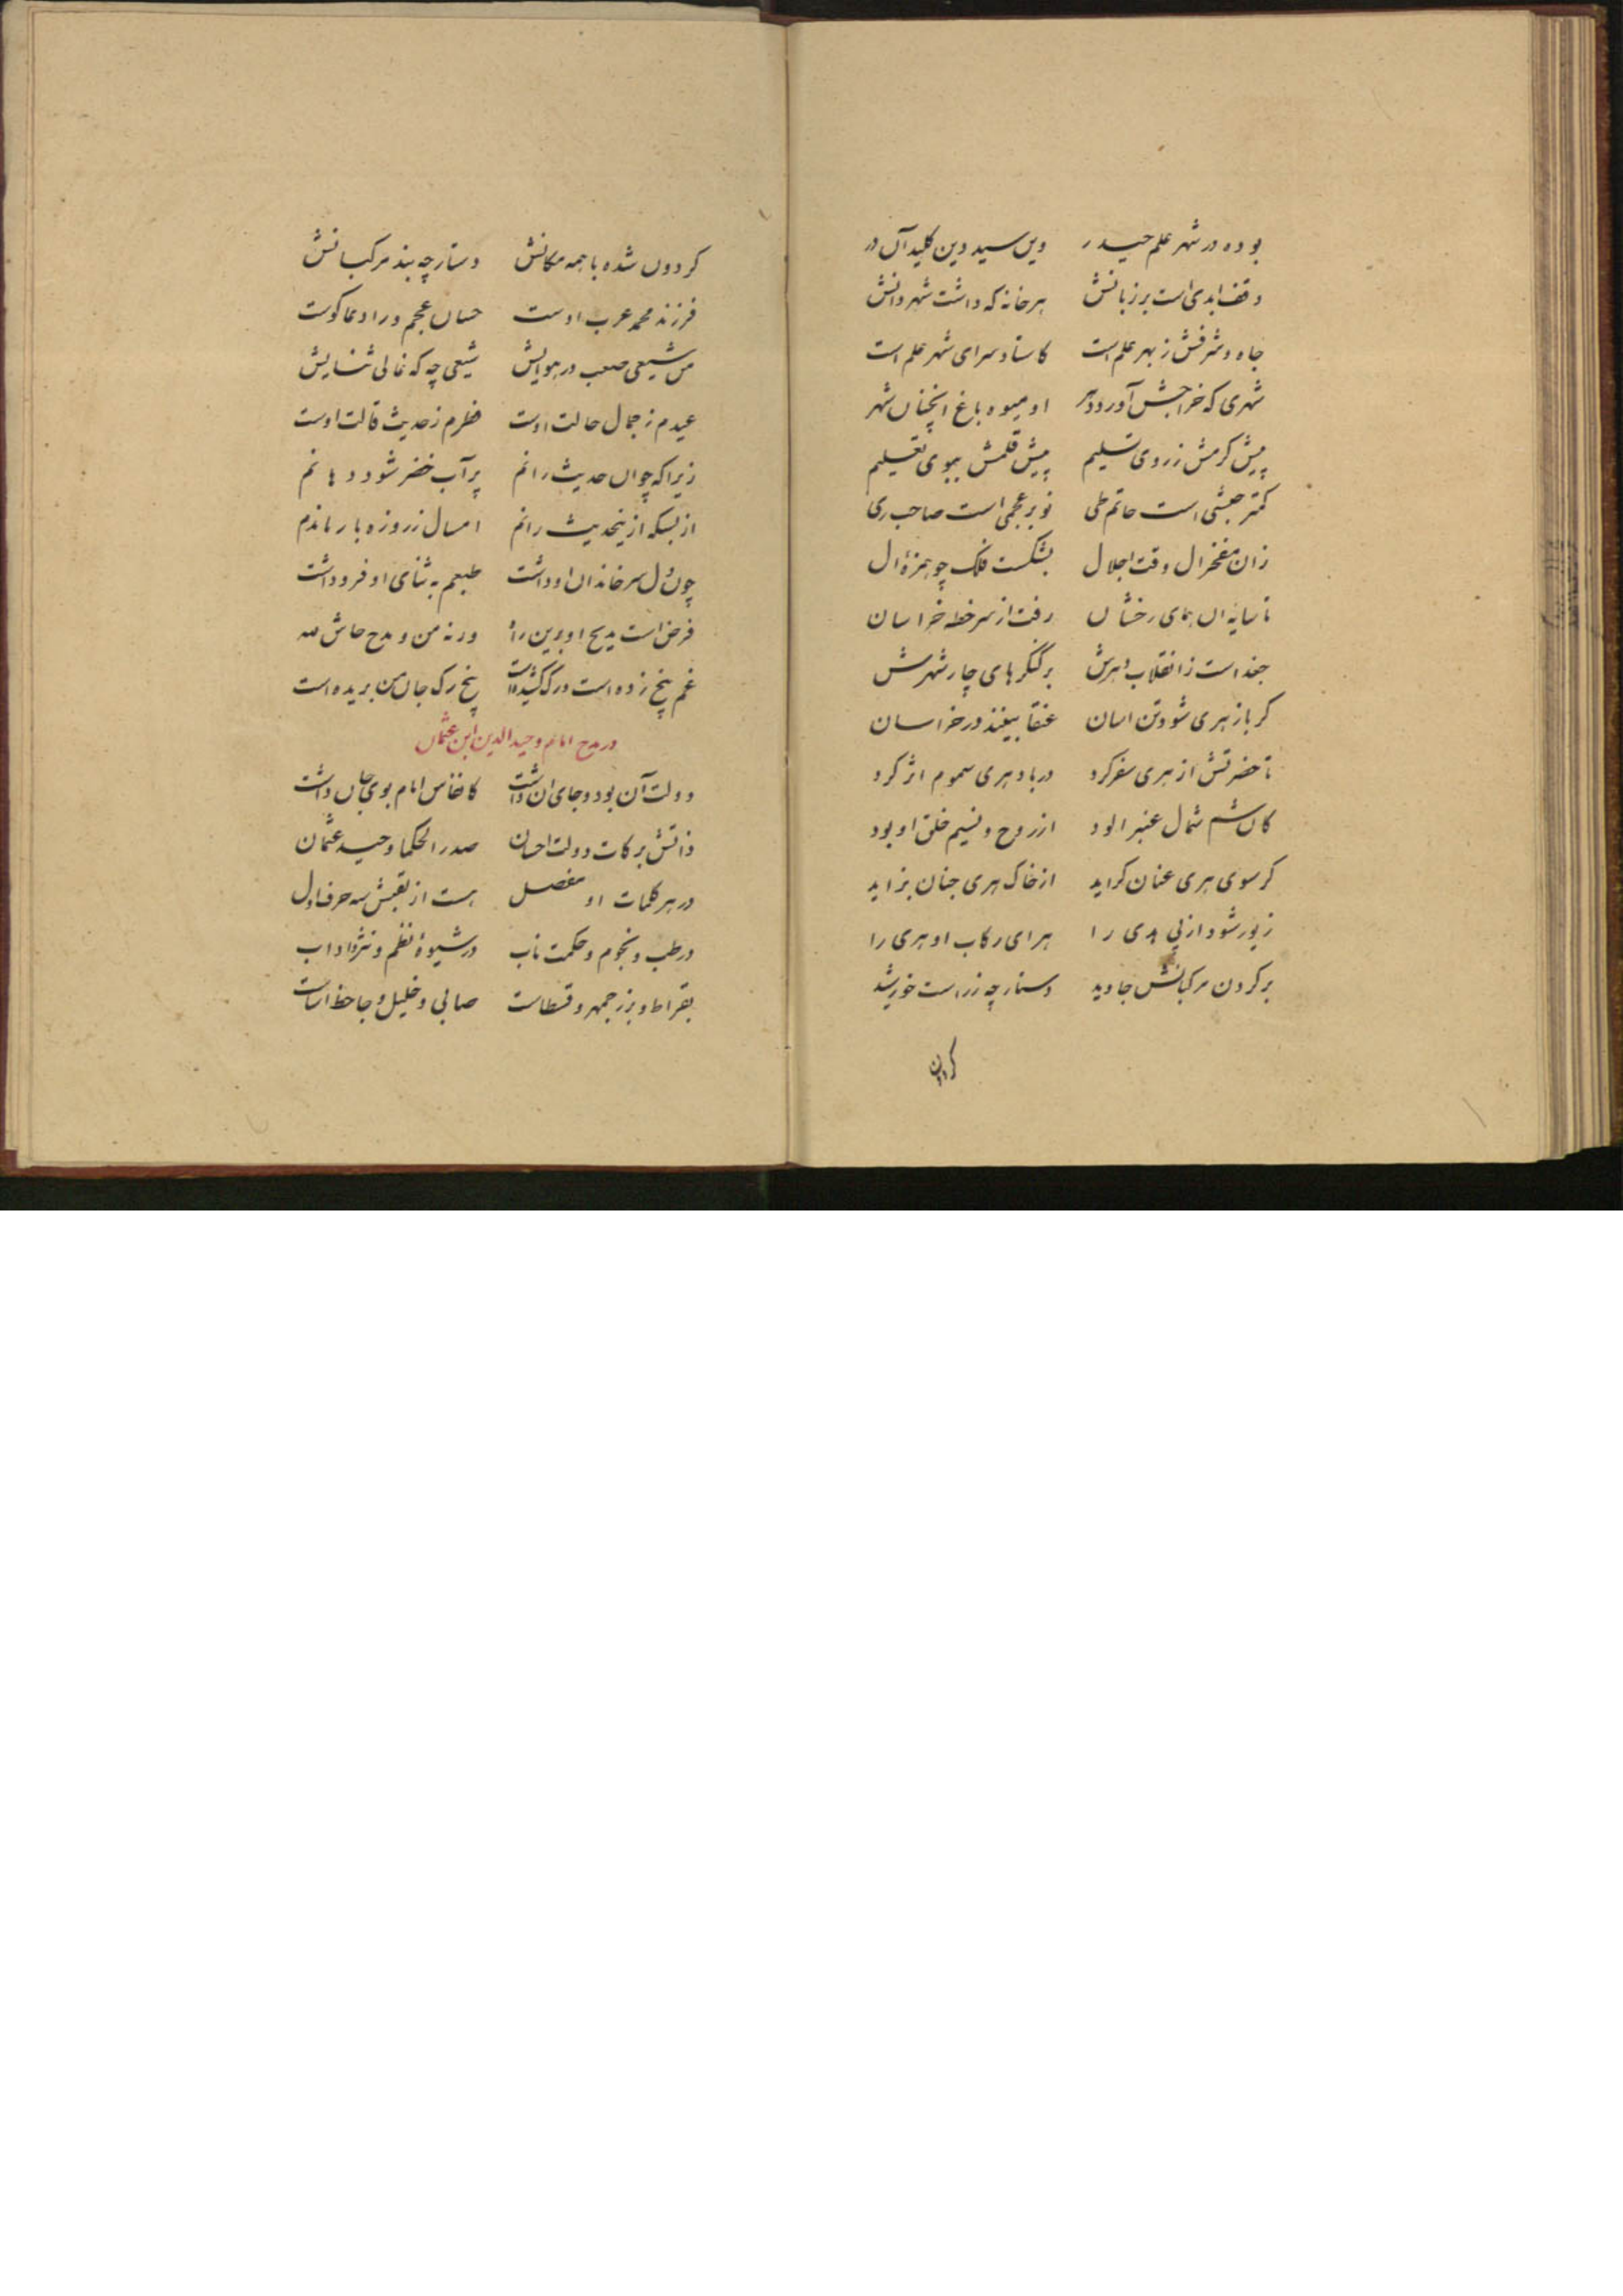 بوده در شهر علم حیدر وین سید دین کلید آن در
وقف ابدی است بر زبانش هر خانه که داشت شهر دانش
جاه و شرفش ز بهر علم است کاستاد سرای شهر علم است
شهری که خراجش آورد دهر او میوه باغ انچنان شهر
پیش کرمش ز روی تسلیم پیش قلمش ببوی تعلیم
کمتر حبشی است حاتم طی نوبر عجمی است صاحب ری
زان مفخر ال وقت اجلال بشکست فلک چو همزهٔ ال
تا سایه ان همای رخشان رفت از سر خطه خراسان
جغد است ز انقلاب دهرش بر کنگرهای چار شهرش
کر باز هری شود تن اسان عنقا بینند در خراسان
تا حضرتش از هری سفر کرد در باد هری سموم اثر کرد
کان شم شمال عنبر الود از روح و نسیم خلق او بود
کر سوی هری عنان کراید از خاک هری جنان بزاید
زیور شود از پی هدی را هرای رکاب او هری را
بر کردن مرکبانش جاوید دستارچه زر است خورشید
کردون
کردون شده با همه مکانش دستارچه بند مرکبانش
فرزند محمد عرب اوست حسان عجم ورا دعا کوست
من شیعی صعب در هوایش شیعی چه که غالی ثنایش
عیدم ز جمال حالت اوست فطرم ز حدیث قالت اوست
زیرا که چو ان حدیث رانم پر آب خضر شود دهانم
از بسکه ازینحدیث رانم امسال ز روزه باز ماندم
چون دل سر خاندان او داشت طبعم به ثنای او فرو داشت
فرض است مدیح او برین راه ورنه من و مدح حاش لله
غم پنج زده است ورک کشیده است پنج رک جان من بریده است
در مدح امام وحید الدین ابن عثمان
دولت آن بود و جای ان داشت کانفاس امام بوی جان داشت
ذاتش برکات دولت احسان صدر الحکما وحید عثمان
در هر کلمات او مفصل هست از لقبش سه حرف اول
در طب و نجوم و حکمت ناب در شیوهٔ نظم و نثر و اداب
بقراط و بزرجمهر و قسطاست صابی و خلیل و جاحظ اساست